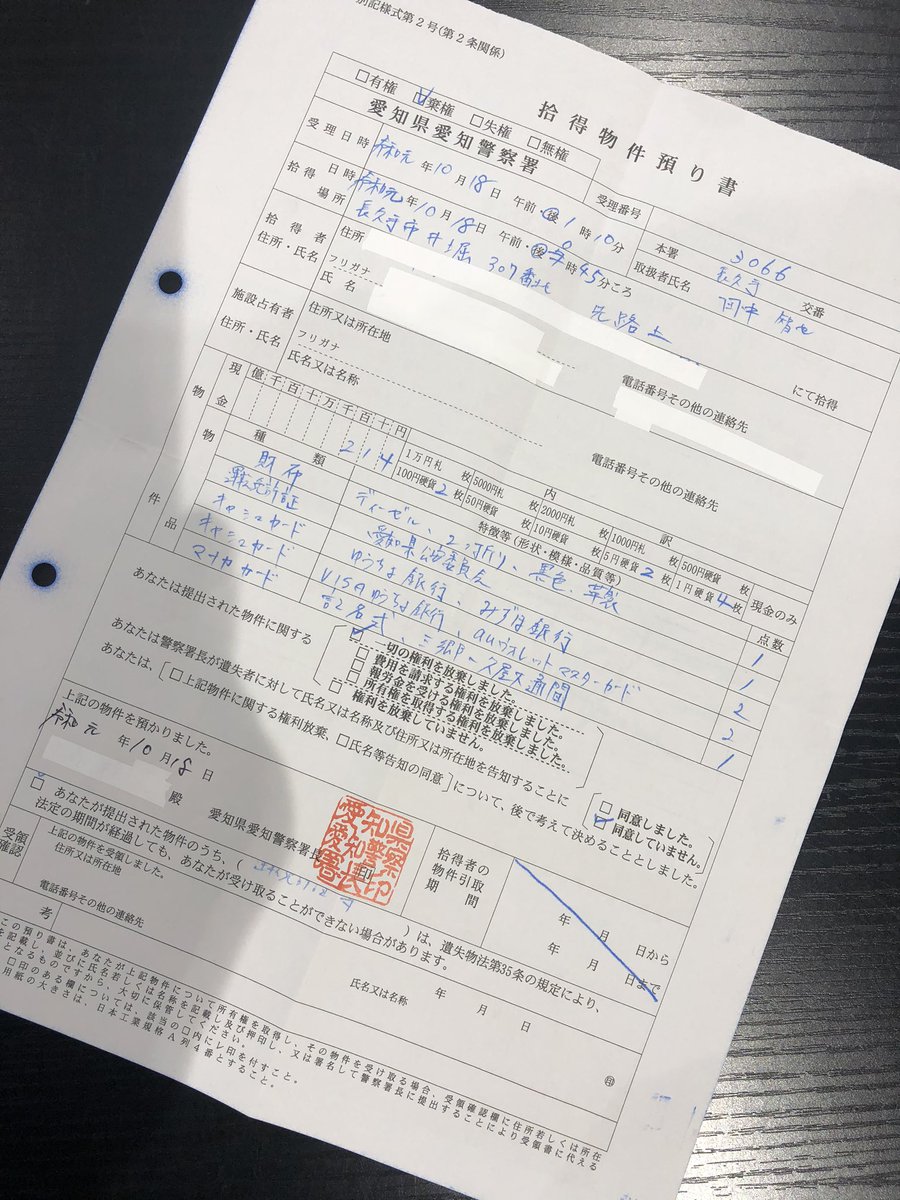 別記様式第2号(第2条関係)
□有権 ☑棄権 □失権 □無権
拾得物件預り書
愛知県愛知警察署
受理番号 本署 3066
受理日時 令和元年10月18日 午前・後1時10分
取扱者氏名 長久手 交番 田中
拾得日時 令和元年10月18日 午前・後0時45分ころ
場所 長久手市井堀307番地先路上 にて拾得
拾得者 住所・氏名
住所
フリガナ
氏名
電話番号その他の連絡先
施設占有者 住所・氏名
住所又は所在地
フリガナ
氏名又は名称
電話番号その他の連絡先
物件
現金 億千百十万千百十円 214
内訳
1万円札 枚 5000円札 枚 2000円札 枚 1000円札 枚 500円硬貨 枚
100円硬貨2枚 50円硬貨 枚 10円硬貨 枚 5円硬貨2枚 1円硬貨4枚
現金のみ
物品
種類 特徴等(形状・模様・品質等) 点数
財布 ディーゼル、2ツ折り、黒色、革製 1
運転免許証 愛知県公安委員会 1
キャシュカード ゆうちょ銀行、みずほ銀行 2
キャシュカード VISAゆうちょ銀行、auウォレットマスターカード 2
マナカカード 記名式、三郷ー久屋大通間 1
あなたは提出された物件に関する
☑一切の権利を放棄しました。
□費用を請求する権利を放棄しました。
□報労金を受ける権利を放棄しました。
□所有権を取得する権利を放棄しました。
□権利を放棄していません。
あなたは警察署長が遺失者に対して氏名又は名称及び住所又は所在地を告知することに
□同意しました。
☑同意していません。
あなたは、[□上記物件に関する権利放棄、□氏名等告知の同意]について、後で考えて決めることとしました。
上記の物件を預かりました。
令和元年10月18日
殿
愛知県愛知警察署長 印
愛知県愛知警察署長印
拾得者の物件引取期間
年 月 日から
年 月 日まで
☑あなたが提出された物件のうち、( )は、遺失物法第35条の規定により、
法定の期間が経過しても、あなたが受け取ることができない場合があります。
受領確認
上記の物件を受領しました。
年 月 日
住所又は所在地
氏名又は名称 ㊞
電話番号その他の連絡先
考
この預り書は、あなたが上記物件について所有権を取得し、その物件を受け取る場合、受領確認欄に住所若しくは所在
を記載し、並びに氏名若しくは名称を記載し及び押印し、又は署名して警察署長に提出することにより受領書に代える
となるものですから、大切に保管してください。
□印のある欄については、該当の□内にレ印を付すこと。
用紙の大きさは、日本工業規格A列4番とすること。